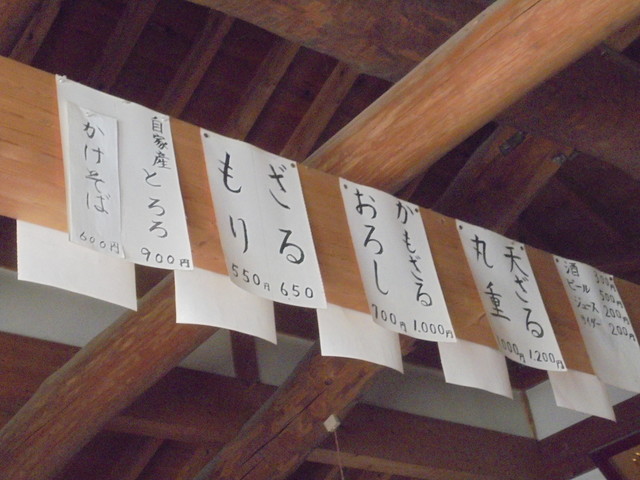 自家産とろろ
900円
かけそば
600円
ざる
650
もり
550円
がもざる
1,000円
おろし
700円
天ざる
1,200円
丸重
酒
ビール
500円
ジュース
200円
サイダー
200円